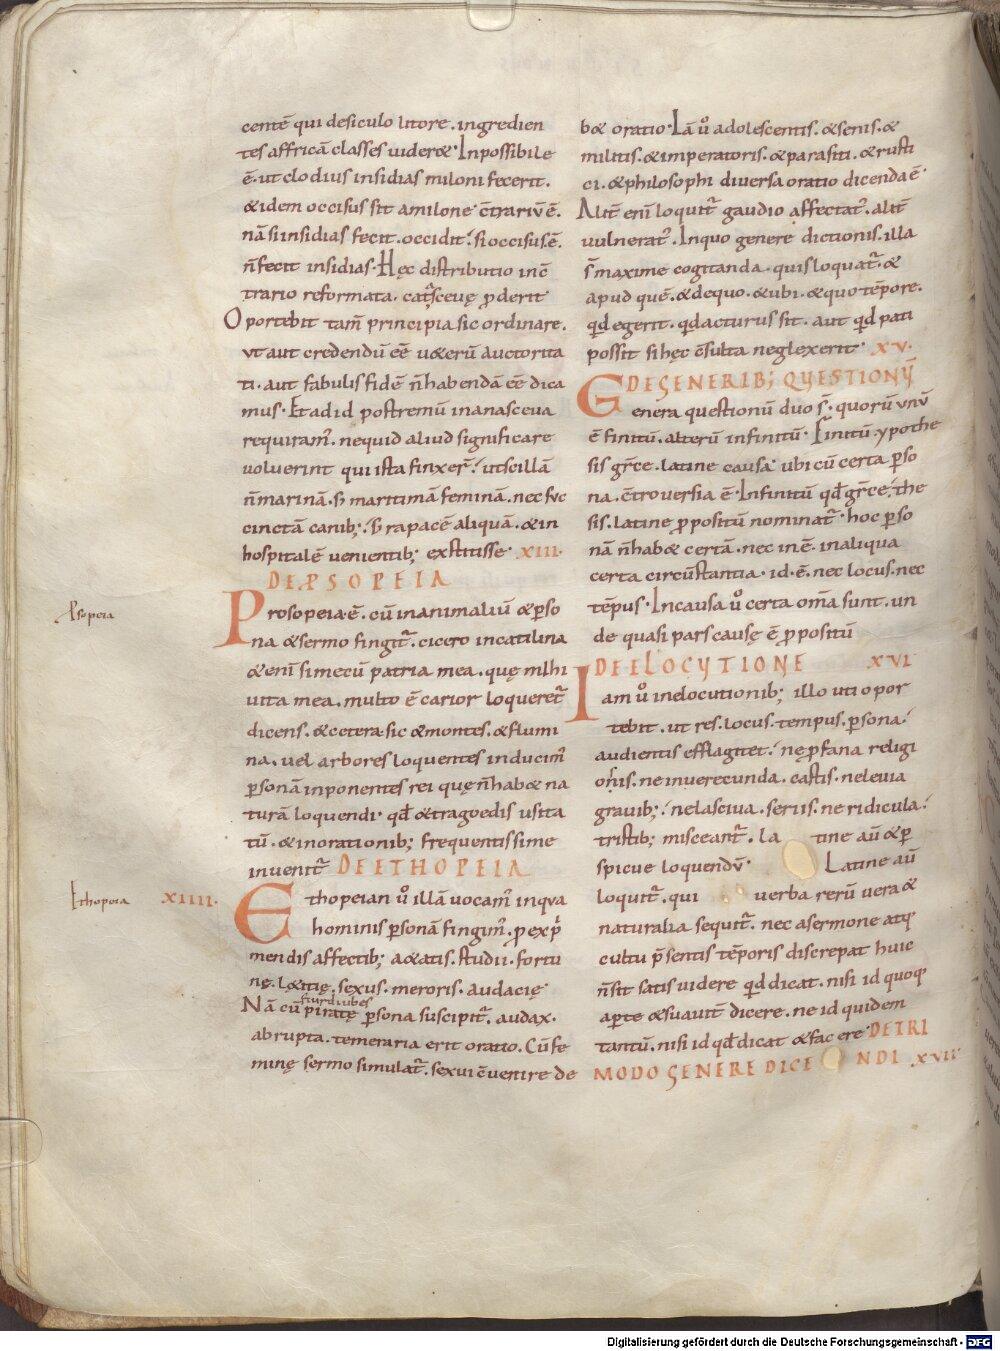 centē qui desiculo litore. ingredien
tes affricā classes uidere&. Inpossibile
ē. ut clodius insidias miloni fecerit.
& idem occisus sit amilone. c̄trariū ē.
nā si insidias fecit. occidit; si occisus. ē.
n̄ fecit insidias. Hęc distributio in c̄
trario reformata. catasceuę p̱derit
Oportebit tam̄ principia sic ordinare.
vt aut credendū eē u&erū auctorita
ti. aut fabulis fidē n̄ habendā eē dica
mus. Et ad id postremū in anasceua
requiram̄. ne quid aliud significare
uoluerint qui ista finxer̄. ut scillā
n̄ marinā. sꝫ maritimā feminā. nec suc
cinctā canib; sꝫ rapacē aliquā. & in
hospitalē uenientib; extitisse. XIII.
DE PSOPEIA
Psopeia
Prosopeia. ē. cū inanimaliū & pso
na & sermo fingit̄. cicero in catilina
& eni si mecū patria mea. quę mihi
uita mea. multo ē carior loqueret̄
dicens. & cetera. sic & montes. & flumi
na. uel arbores loquentes inducim̄
psonā inponentes rei quę n̄ hab& na
turā loquendi. qđ & tragoedis usita
tū. & in orationib; frequentissime
inuenit̄ DE ETHOPEIA
Ethopeia XIIII.
Ethopeian ů illā uocam̄ in qua
hominis psonā fingim̄. p exp̄
mendis affectib; a&atis. studii. fortu
nę. l&itię. sexus. meroris. audacię
Nā cū piratę psona suscipit̄. audax.
abrupta. temeraria erit oratio. Cū fe
minę sermo simulat̄. sexui c̄uenire de
b& oratio. Iā ů adolescentis. & senis. &
militis. & imperatoris. & parasiti. & rusti
ci. & philosophi diuersa oratio dicenda ē
Alit̄ enī loquit̄ gaudio affectat̄. alit̄
uulnerat̄. In quo genere dictionis. illa
s̄ maxime cogitanda. quis loquat̄. &
apud quē. & de quo. & ubi. & quo tēpore.
qđ egerit. qđ acturus sit. aut qđ pati
possit si hec c̄sulta neglexerit XV.
DE GENERIB; QUESTIONŪ
Genera questionū duo s̄. quorū unū
ē finitū. alterū infinitū. Finitū ypothe
sis gr̄ce. latine causa. ubi cū certa pso
na. c̄trouersia ē. Infinitū qđ gr̄ce. the
sis. latine p̱positū nominat̄. hoc pso
nā n̄ hab& certā. nec inē. in aliqua
certa circūstantia. id. ē. nec locus. nec
tēpus. In causa ů certa om̄a sunt. un
de quasi pars causę ē p̱positū
DE ELOCUTIONE XVI
Iam ů in elocutionib; illo uti opor
tebit. ut res. locus. tempus. psona.
audientis efflagitet. nę pfana religi
osis. ne inuerecunda. castis. ne leuia
grauib; ne lasciua. seriis. ne ridicula.
tristib; misceant̄. la tine aū & p
spicue loquendū. Latine aū
loquit̄. qui uerba rerū uera &
naturalia sequit̄. nec a sermone atq
cultu p̄sentis tēporis discrepat huic
n̄ sit satis uidere qđ dicat. nisi id quoq
aperte & suauit̄ dicere. ne id quidem
tantū. nisi id qđ dicat & fac ere DE TRI
MODO GENERE DICE NDI. XVII
Digitalisierung gefördert durch die Deutsche Forschungsgemeinschaft - DFG